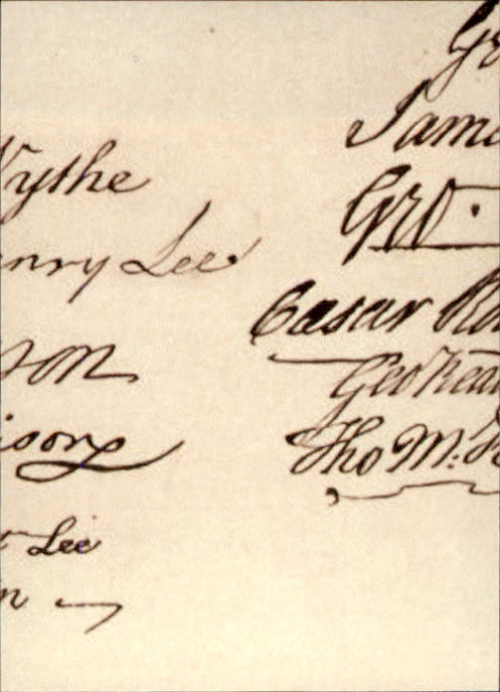 Wythe
enry Lee
son
ison
t Lee
n
Ge
Jam
Geo.
Cæsar Ro
Geo Read
Tho M: